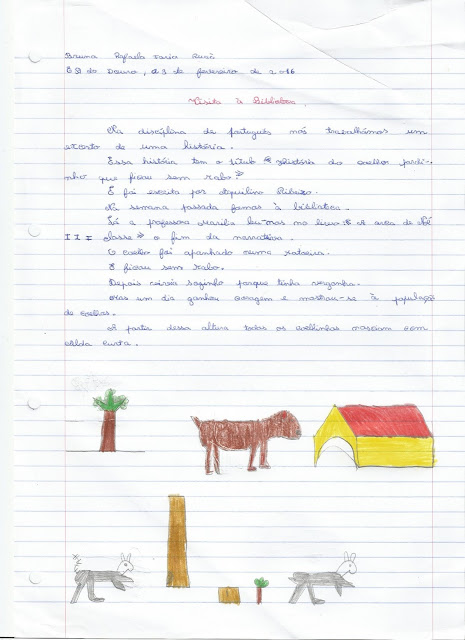 Bruna Rafaela Faria Ruri
E B do Douro, a 3 de fevereiro de 2016
Visita à Biblioteca.
Na disciplina de português nós trabalhámos um
excerto de uma história.
Essa história tem o título « História do coelho pardi-
nho que ficou sem rabo.»
E foi escrita por Aquilino Ribeiro.
Na semana passada fomos à biblioteca.
Lá a professora Marília leu-nos no livro « A arca de Noé
III Classe » o fim da narrativa.
O coelho foi apanhado numa ratoeira.
E ficou sem rabo.
Depois vivia sozinho porque tinha vergonha.
Mas um dia ganhou coragem e mostrou-se à população
de coelhos.
A partir dessa altura todos os coelhinhos nasciam com
curta.